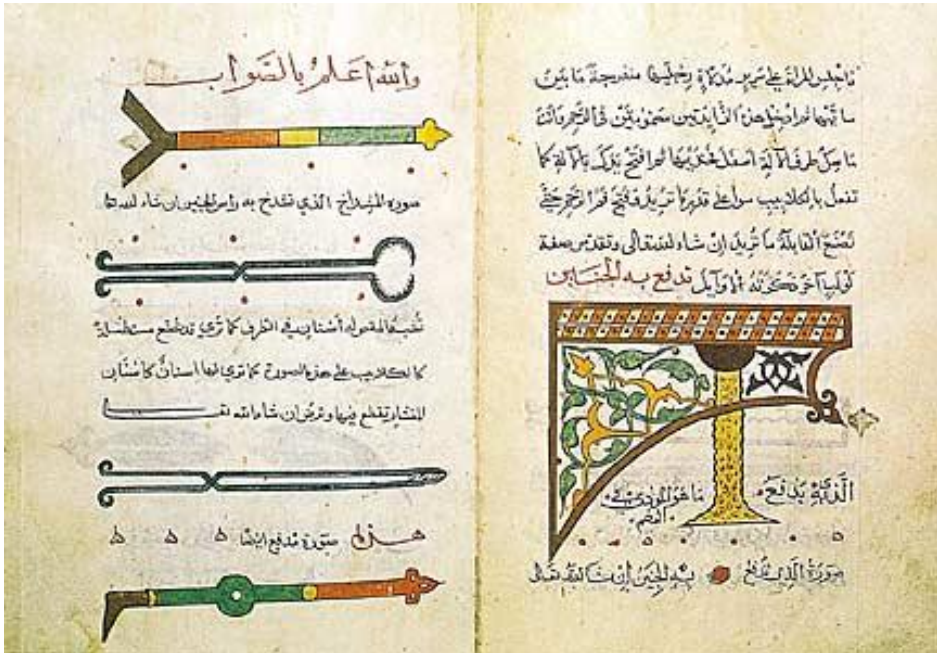 واجلس المراة على سرير مدلاة رجليها منفرجة ما بين
ساقيها ثم ادخل هذه الزايدتين مضمومتين في الرحم وانت
ماسك طرف الآلة اسفل فخذيها ثم افتح يدك بالآلة كما
تفعل بالكلاليب سوا على قدر ما تريد فتح فم الرحم حتى
تصنع القابلة ما تريد ان شاء الله تعالى صفة
لولب آخر ذكرته الاوايل تدفع به الجنين
الذي يدفع
ما هو
صورة الذي يدفع به الجنين ان شا الله تعالى
والله أعلم بالصواب
صورة المشداخ الذي تشدخ به راس الجنين ان شاء الله
اسنان في الطرف كما ترى قد تصنع مستطيلة
كالكلاليب على هذه الصورة كما ترى لها اسنان كاسنان
المنشار تقطع بها وترض ان شاء الله
هذه صورة مدفع ايضا